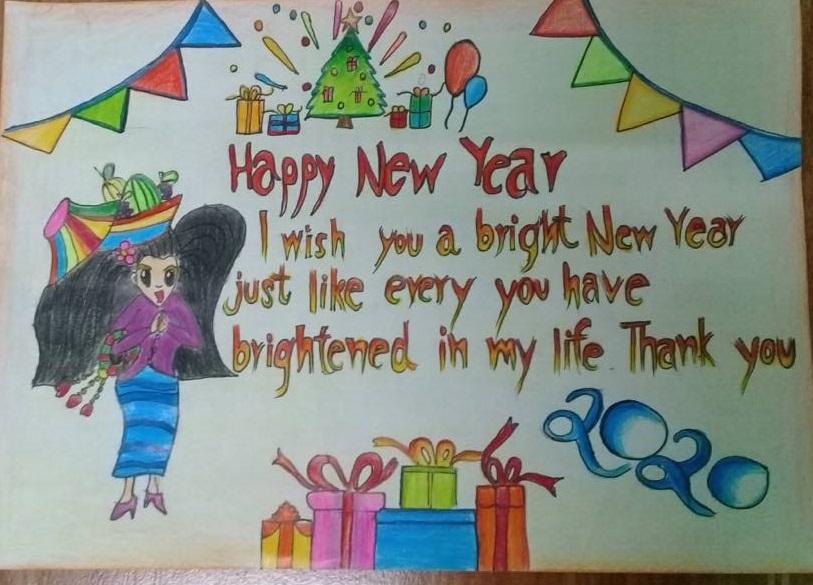 Happy New Year
I wish you a bright New Year
just like every you have
brightened in my life Thank you
2020